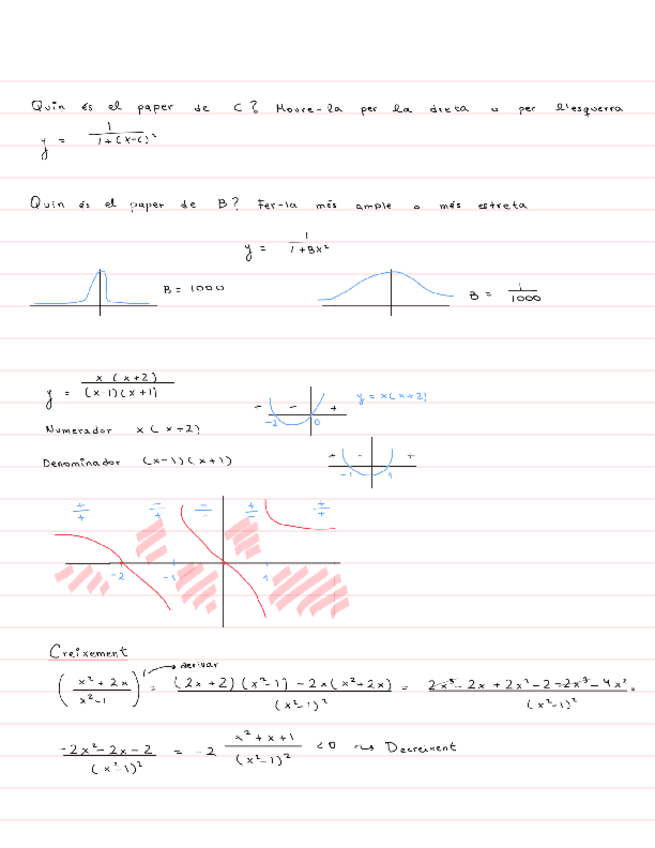 Quin és el paper de C? Moure-la per la dreta o per l'esquerra
y = 1 / 1+(x-c)²
Quin és el paper de B? Fer-la més ample o més estreta
y = 1 / 1+Bx²
B = 1000
B = 1 / 1000
y = x(x+2) / (x-1)(x+1)
- - +
-2 0
y = x(x+2)
Numerador x(x+2)
Denominador (x-1)(x+1)
+ - +
-1 1
+/+ -/+ -/- +/- +/+
-2 -1 1
Creixement
derivar
(x²+2x / x²-1)' = (2x+2)(x²-1) - 2x(x²+2x) / (x²-1)² = 2x³-2x+2x²-2-2x³-4x² / (x²-1)² =
-2x²-2x-2 / (x²-1)² = -2 x²+x+1 / (x²-1)² <0 ⇝ Decreixent